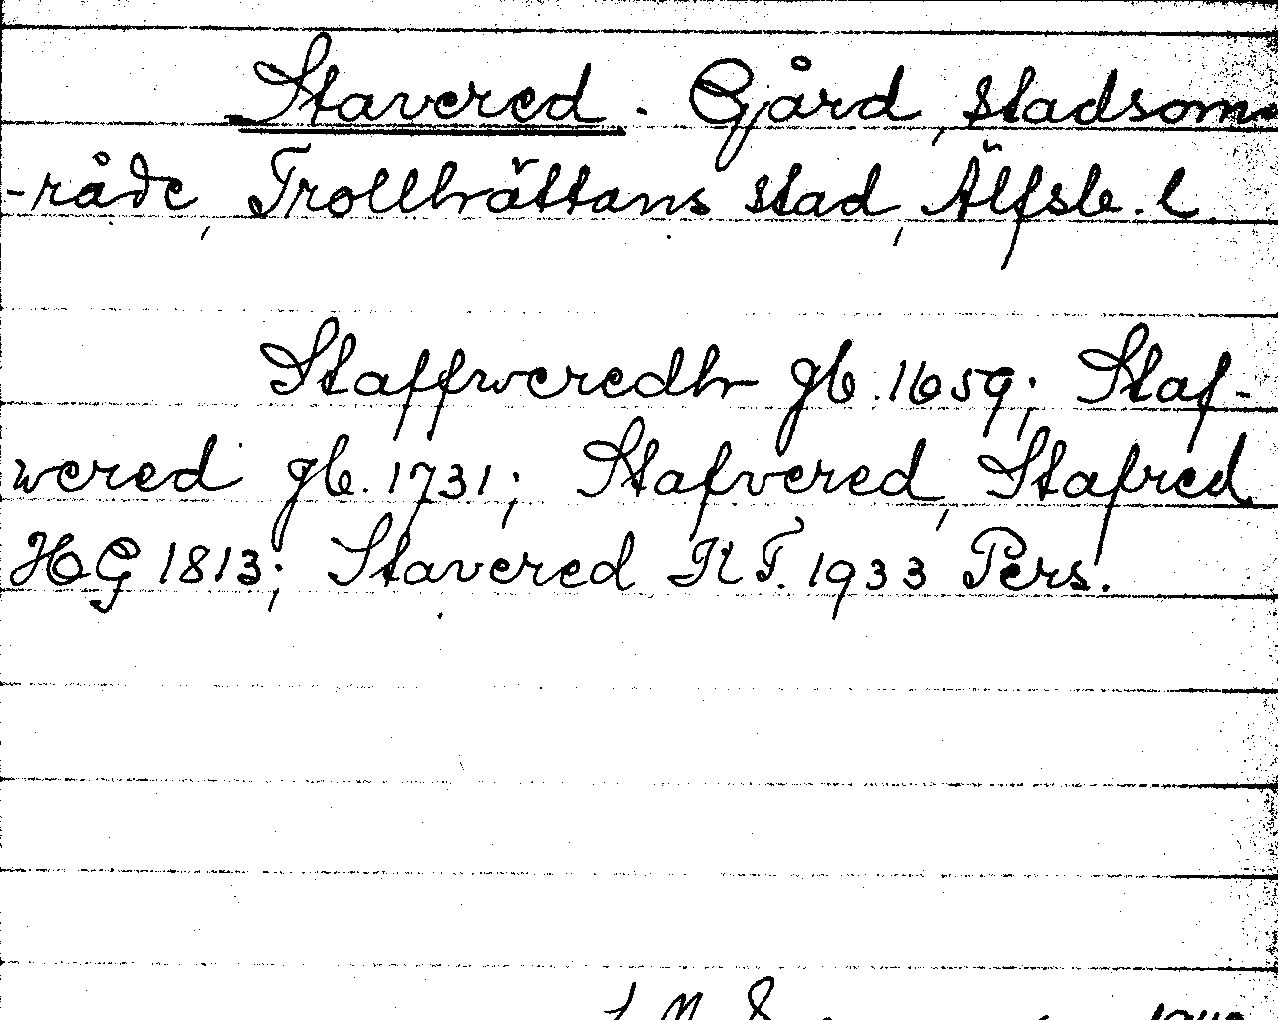 Stavered. Gård, stadsom-
-råde, Trollhättans stad, Älfsb. l.
Staffweredh gb. 1659; Staf-
wered gb. 1731; Stafvered, Stafred
HG 1813; Stavered KT. 1933 Pers.